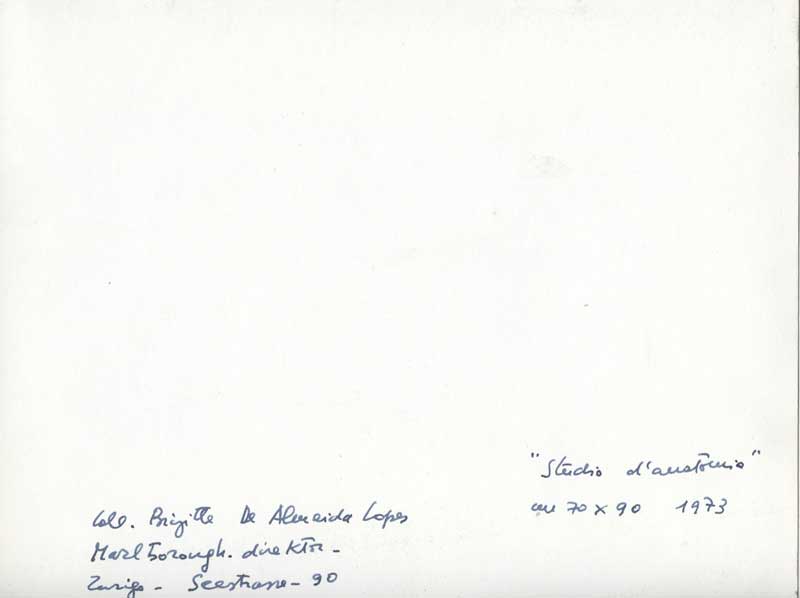 "Studio d'anatomia"
cm 70 x 90 1973
Coll. Brigitte De Almeida Lopes
Marlborough. direktor -
Zurigo - Seestrasse - 90